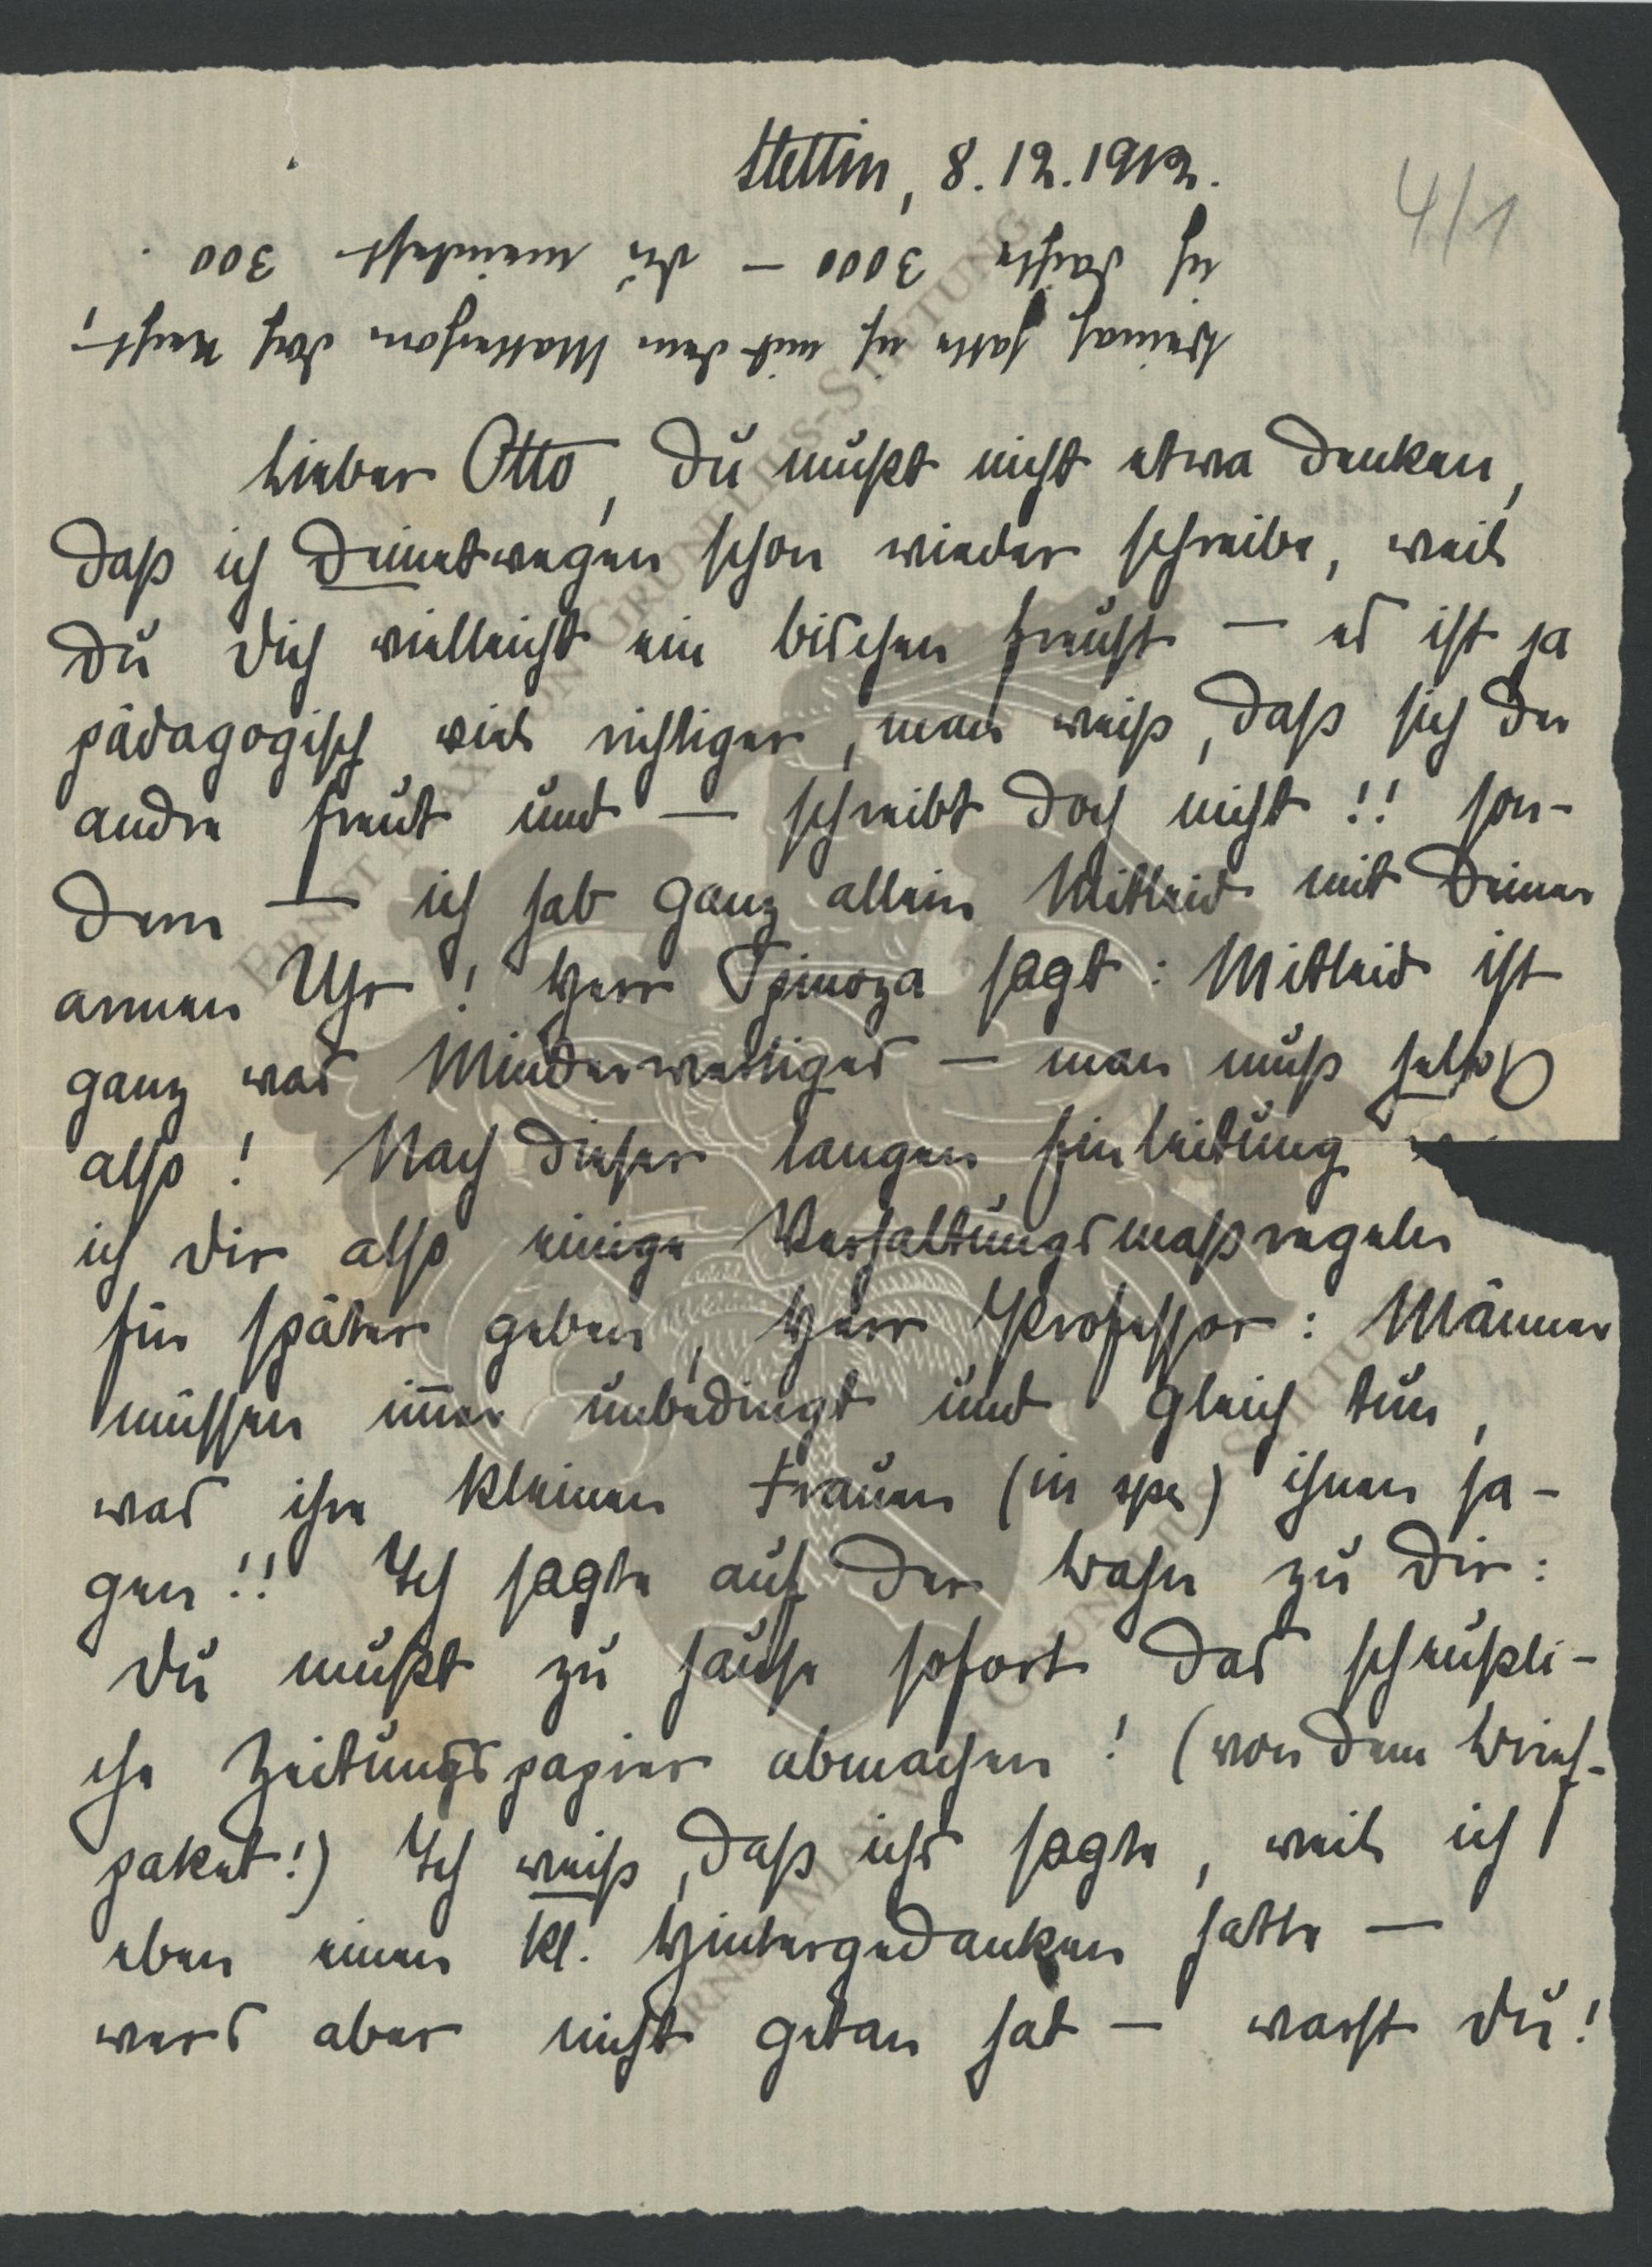 Stettin, 8.12.1912.
4/1
Beinah hatte ich mit dem Matterhorn doch Recht!
ich dachte 3000 – du meintest 300.
Lieber Otto, Du mußt nicht etwa denken,
daß ich Deinetwegen schon wieder schreibe, weil
Du Dich vielleicht ein bischen freust – es ist ja
pädagogisch viel richtiger, man weiß, daß sich der
andre freut und – schreibt doch nicht!! son-
dern – ich hab ganz allein Mitleid mit Deiner
armen Uhr! Herr Spinoza sagt: Mitleid ist
ganz was Minderwertiges – man muß helfen
also! Nach dieser langen Einleitung
ich Dir also einige Verhaltungsmaßregeln
für später geben, Herr Professor: Männer
müssen im̅er unbedingt und gleich tun,
was ihre kleinen Frauen (in spe) ihnen sa-
gen!! Ich sagte auf der Bahn zu Dir:
Du mußt zu hause sofort das scheußli-
che Zeitungspapier abmachen! (von dem Brief-
paket!) Ich weiß, daß ichs sagte, weil ich
eben einen kl. Hintergedanken hatte –
wers aber nicht getan hat – warst Du!
ERNST MAX VON GRUNELIUS-STIFTUNG
ERNST MAX VON GRUNELIUS-STIFTUNG